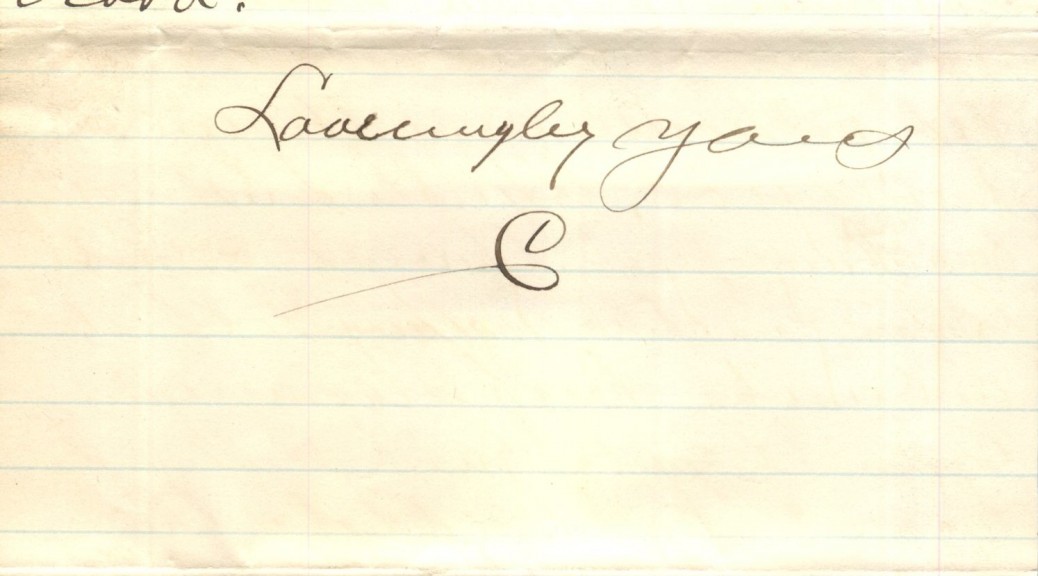 Loveingly yours
C